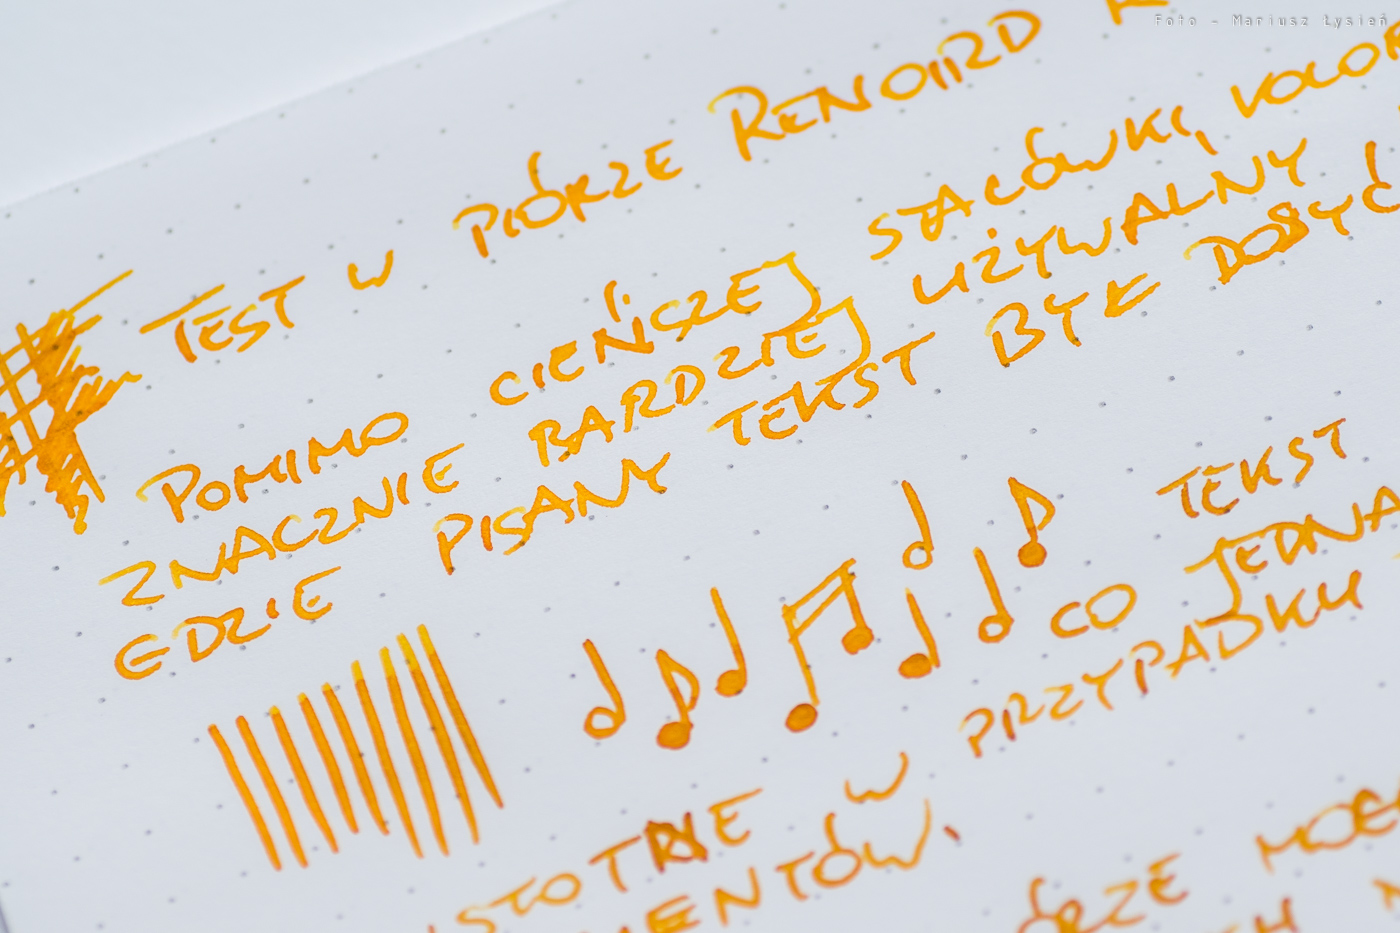 Foto - Mariusz Łysień
TEST W PIÓRZE
POMIMO CIEŃSZEJ STALÓWKI, KOLOR
ZNACZNIE BARDZIEJ UŻYWALNY
GDZIE PISANY TEKST BYŁ DOSYĆ
TEKST
CO JEDNA
ISTOTNE W PRZYPADKU
MENTÓW.